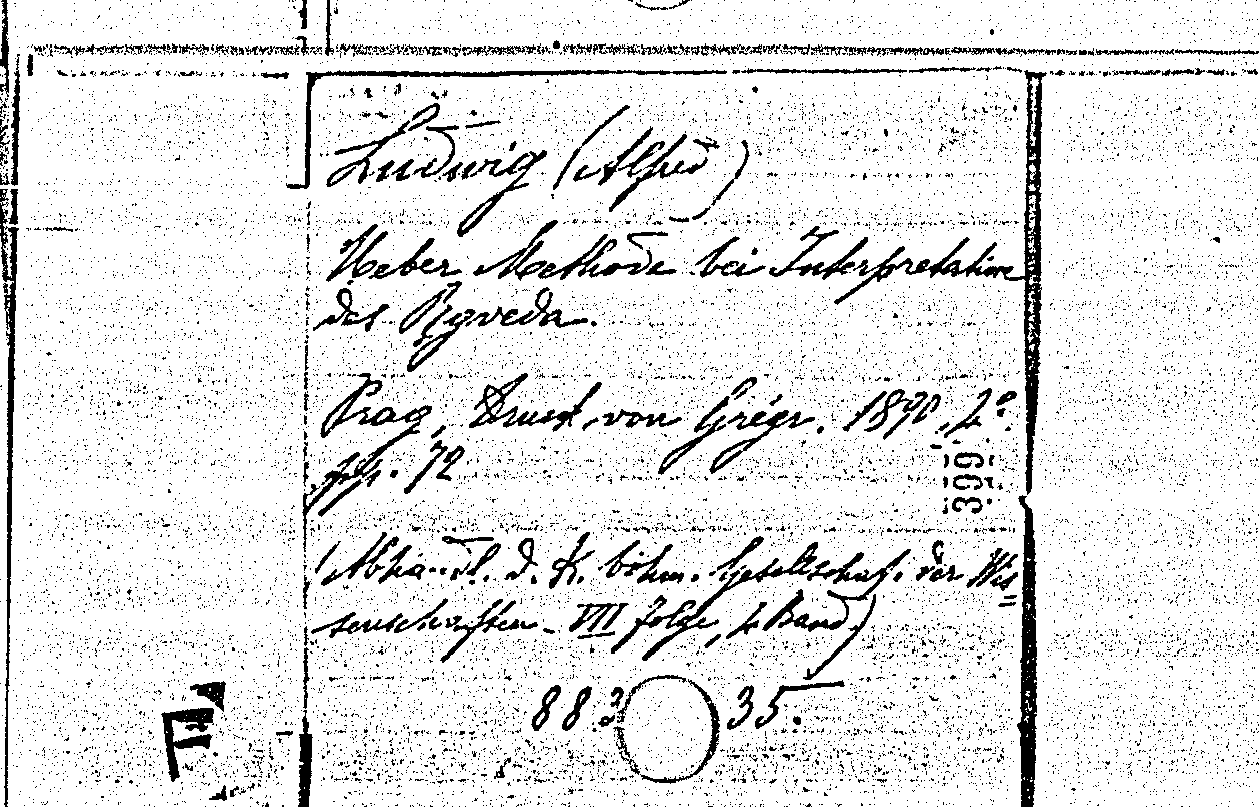 Ludwig (Alfred)
Ueber Methode bei Interpretation
des Ṛgveda.
Prag, Druck von Grégr. 1890, 2°.
pp. 72
399
(Abhandl. d. K. böhm. Gesellschaf. der Wis
senschaften - VII folge, 4 Band)
883 35.